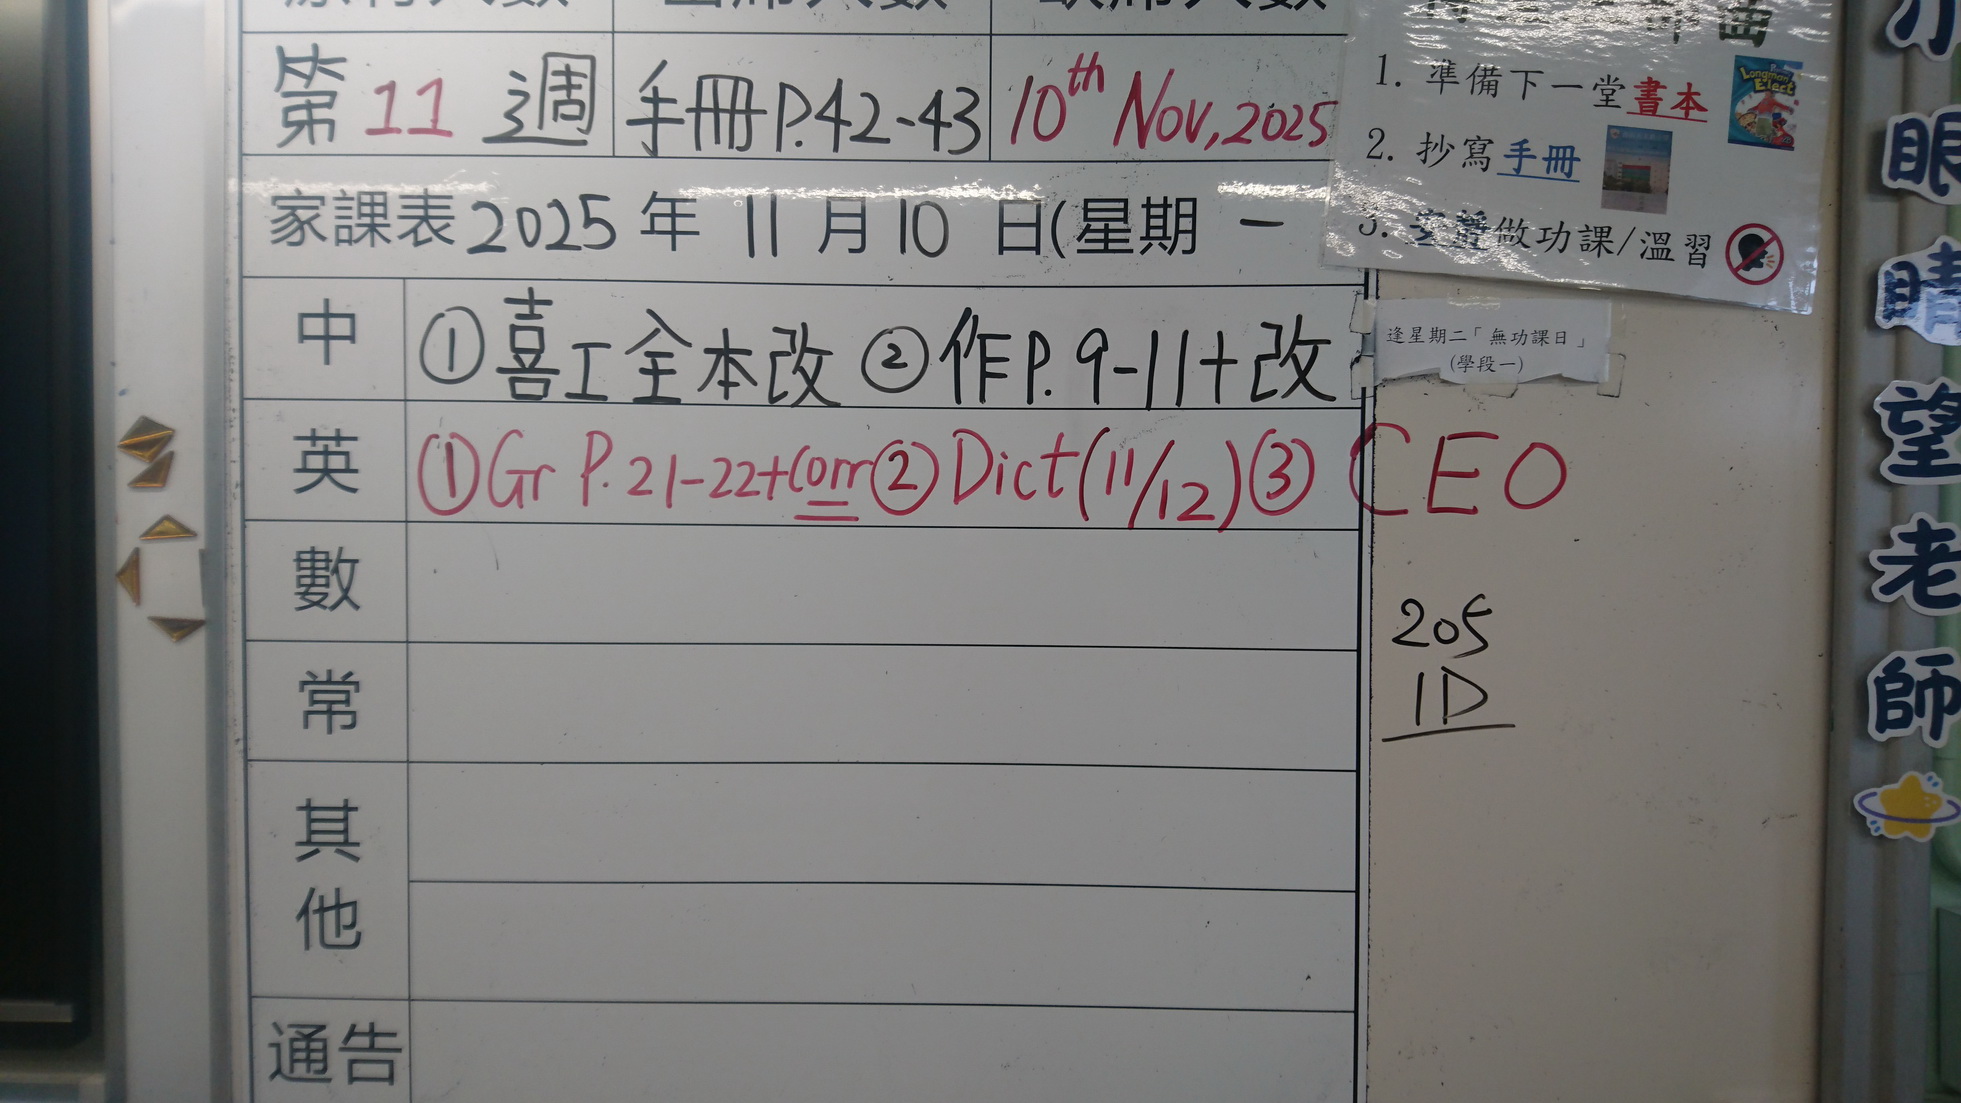 第 11 週 手冊P.42-43 10th Nov, 2025
家課表 2025 年 11 月 10 日(星期 一
中 ①喜工全本改 ②作P.9-11+改
英 ①Gr P.21-22+Corr ②Dict(11/12) ③ CEO
數
常
其他
通告
1. 準備下一堂書本
Longman Elect
2. 抄寫手冊
3. 安靜做功課/溫習
逢星期二「無功課日」
(學段一)
205
1D
小眼睛望老師